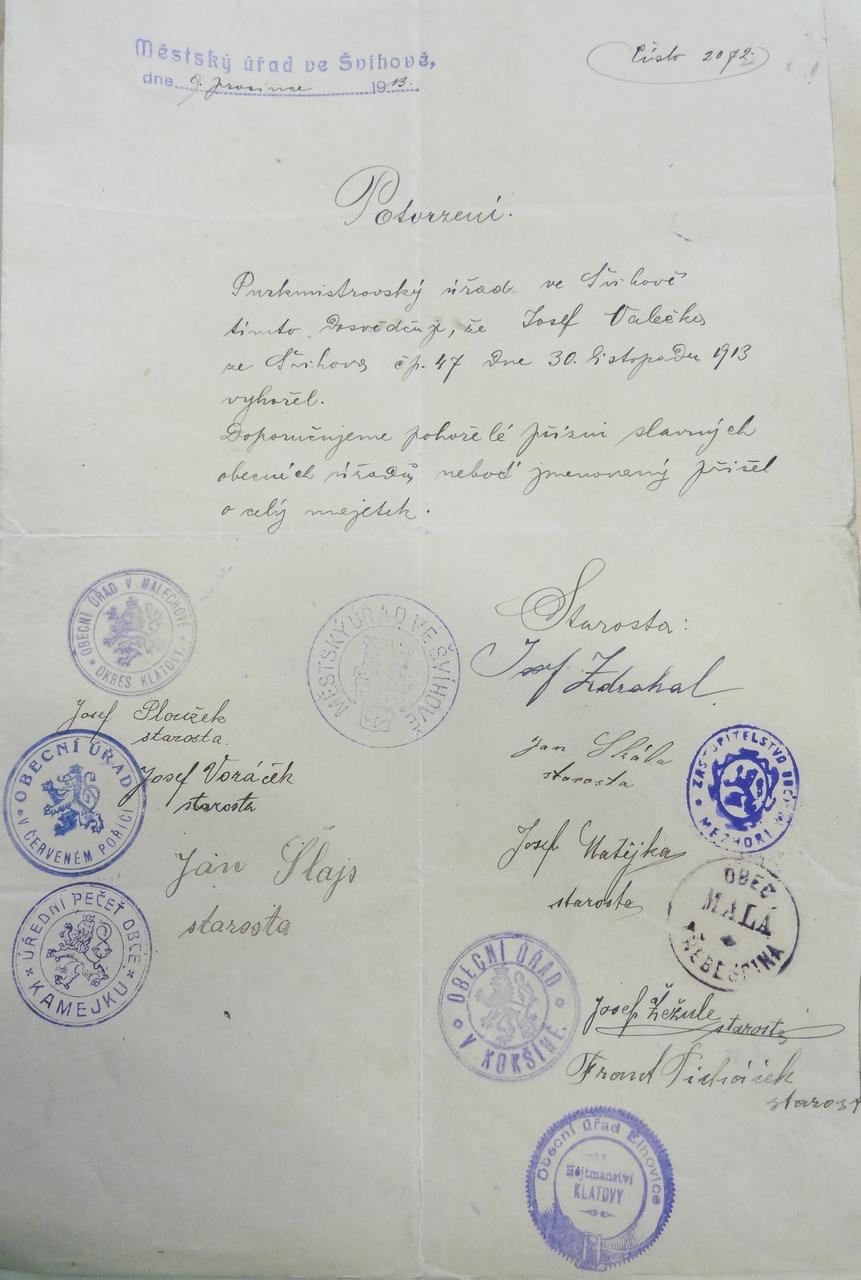 Městský úřad ve Švihově,
dne 9. prosince 1913.
Číslo 2072.
Potvrzení.
Purkmistrovský úřad ve Švihově
tímto dosvědčuje, že Josef Valečka
ze Švihova čp. 47 dne 30. listopadu 1913
vyhořel.
Doporučujeme pohořelé přízni slavných
obecních úřadů neboď jmenovaný přišel
o celý majetek.
OBECNÍ ÚŘAD V MALECHOVĚ
OKRES KLATOVY.
MĚSTSKÝ ÚŘAD VE ŠVIHOVĚ
Starosta:
Josef Zdrahal.
Josef Plouzek
starosta.
Jan Skála
starosta
ZASTUPITELSTVO OBCE
MEZHOŘÍ
OBECNÍ ÚŘAD
V ČERVENÉM POŘÍČÍ
Josef Voráček
starosta
Josef Matějka
starosta
OBEC
MALÁ
Jan Šlajs
starosta
ÚŘEDNÍ PEČEŤ OBCE
KAMEJKU
OBECNÍ ÚŘAD
V KOKŠÍNĚ.
Josef Žežule
starosta
Frant
starost
Obecní úřad Elhovice
Hejtmanství
KLATOVY